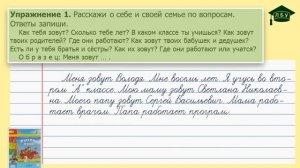 Упражнение 1. Расскажи о себе и своей семье по вопросам.
Ответы запиши.
Как тебя зовут? Сколько тебе лет? В каком классе ты учишься? Как зовут
твоих родителей? Где они работают? Как зовут твоих бабушек и дедушек?
Есть ли у тебя братья и сёстры? Как их зовут? Где они работают или учатся?
Образец: Меня зовут ... .
Меня зовут Володя. Мне восемь лет. Я учусь во вто-
ром "А" классе. Мою маму зовут Светлана Николаев-
на. Моего папу зовут Сергей Васильевич. Мама рабо-
тает врачом. Папа работает програм-